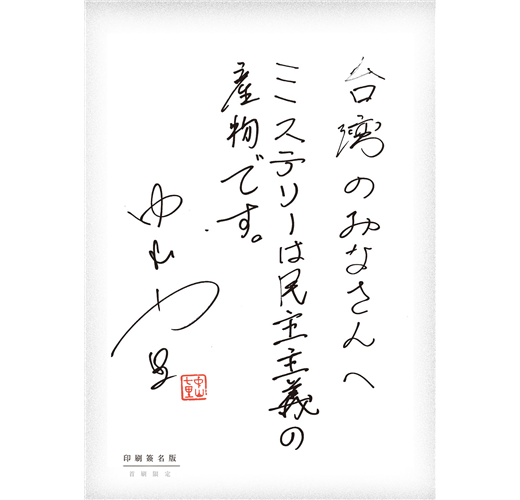 台湾のみなさんへ
ミステリーは民主主義の
産物です。
中山七里
印刷簽名版
首刷限定